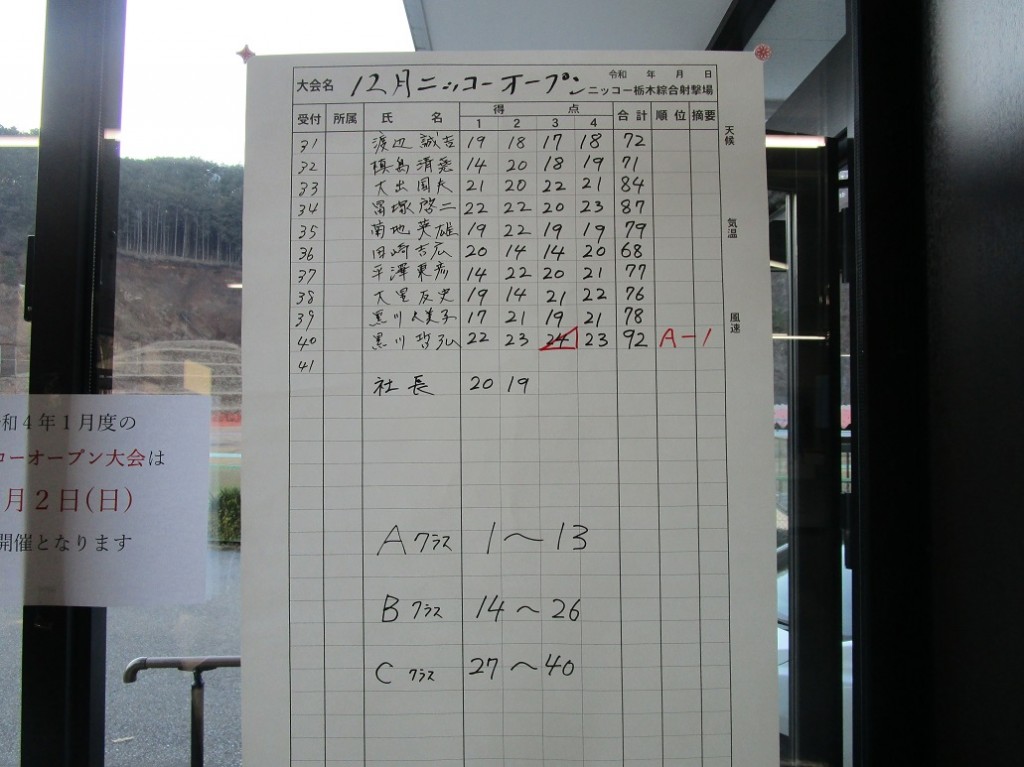 大会名 12月ニッコーオープン 令和 年 月 日
ニッコー栃木綜合射撃場
受付 所属 氏 名 得 点 合計 順位 摘要
1 2 3 4
天候
31 渡辺 誠吉 19 18 17 18 72
32 清 14 20 18 19 71
33 大出 国夫 21 20 22 21 84
34 冨塚 啓二 22 22 20 23 87
35 菊地 英雄 19 22 19 19 79
気温
36 田崎 吉広 20 14 14 20 68
37 平澤 東彦 14 22 20 21 77
38 大尾 友史 19 14 21 22 76
39 黒川 美子 17 21 19 21 78
風速
40 黒川 哲弘 22 23 24 23 92 A-1
41
社長 20 19
Aクラス 1～13
Bクラス 14～26
Cクラス 27～40
和4年1月度の
コーオープン大会は
月2日(日)
開催となります